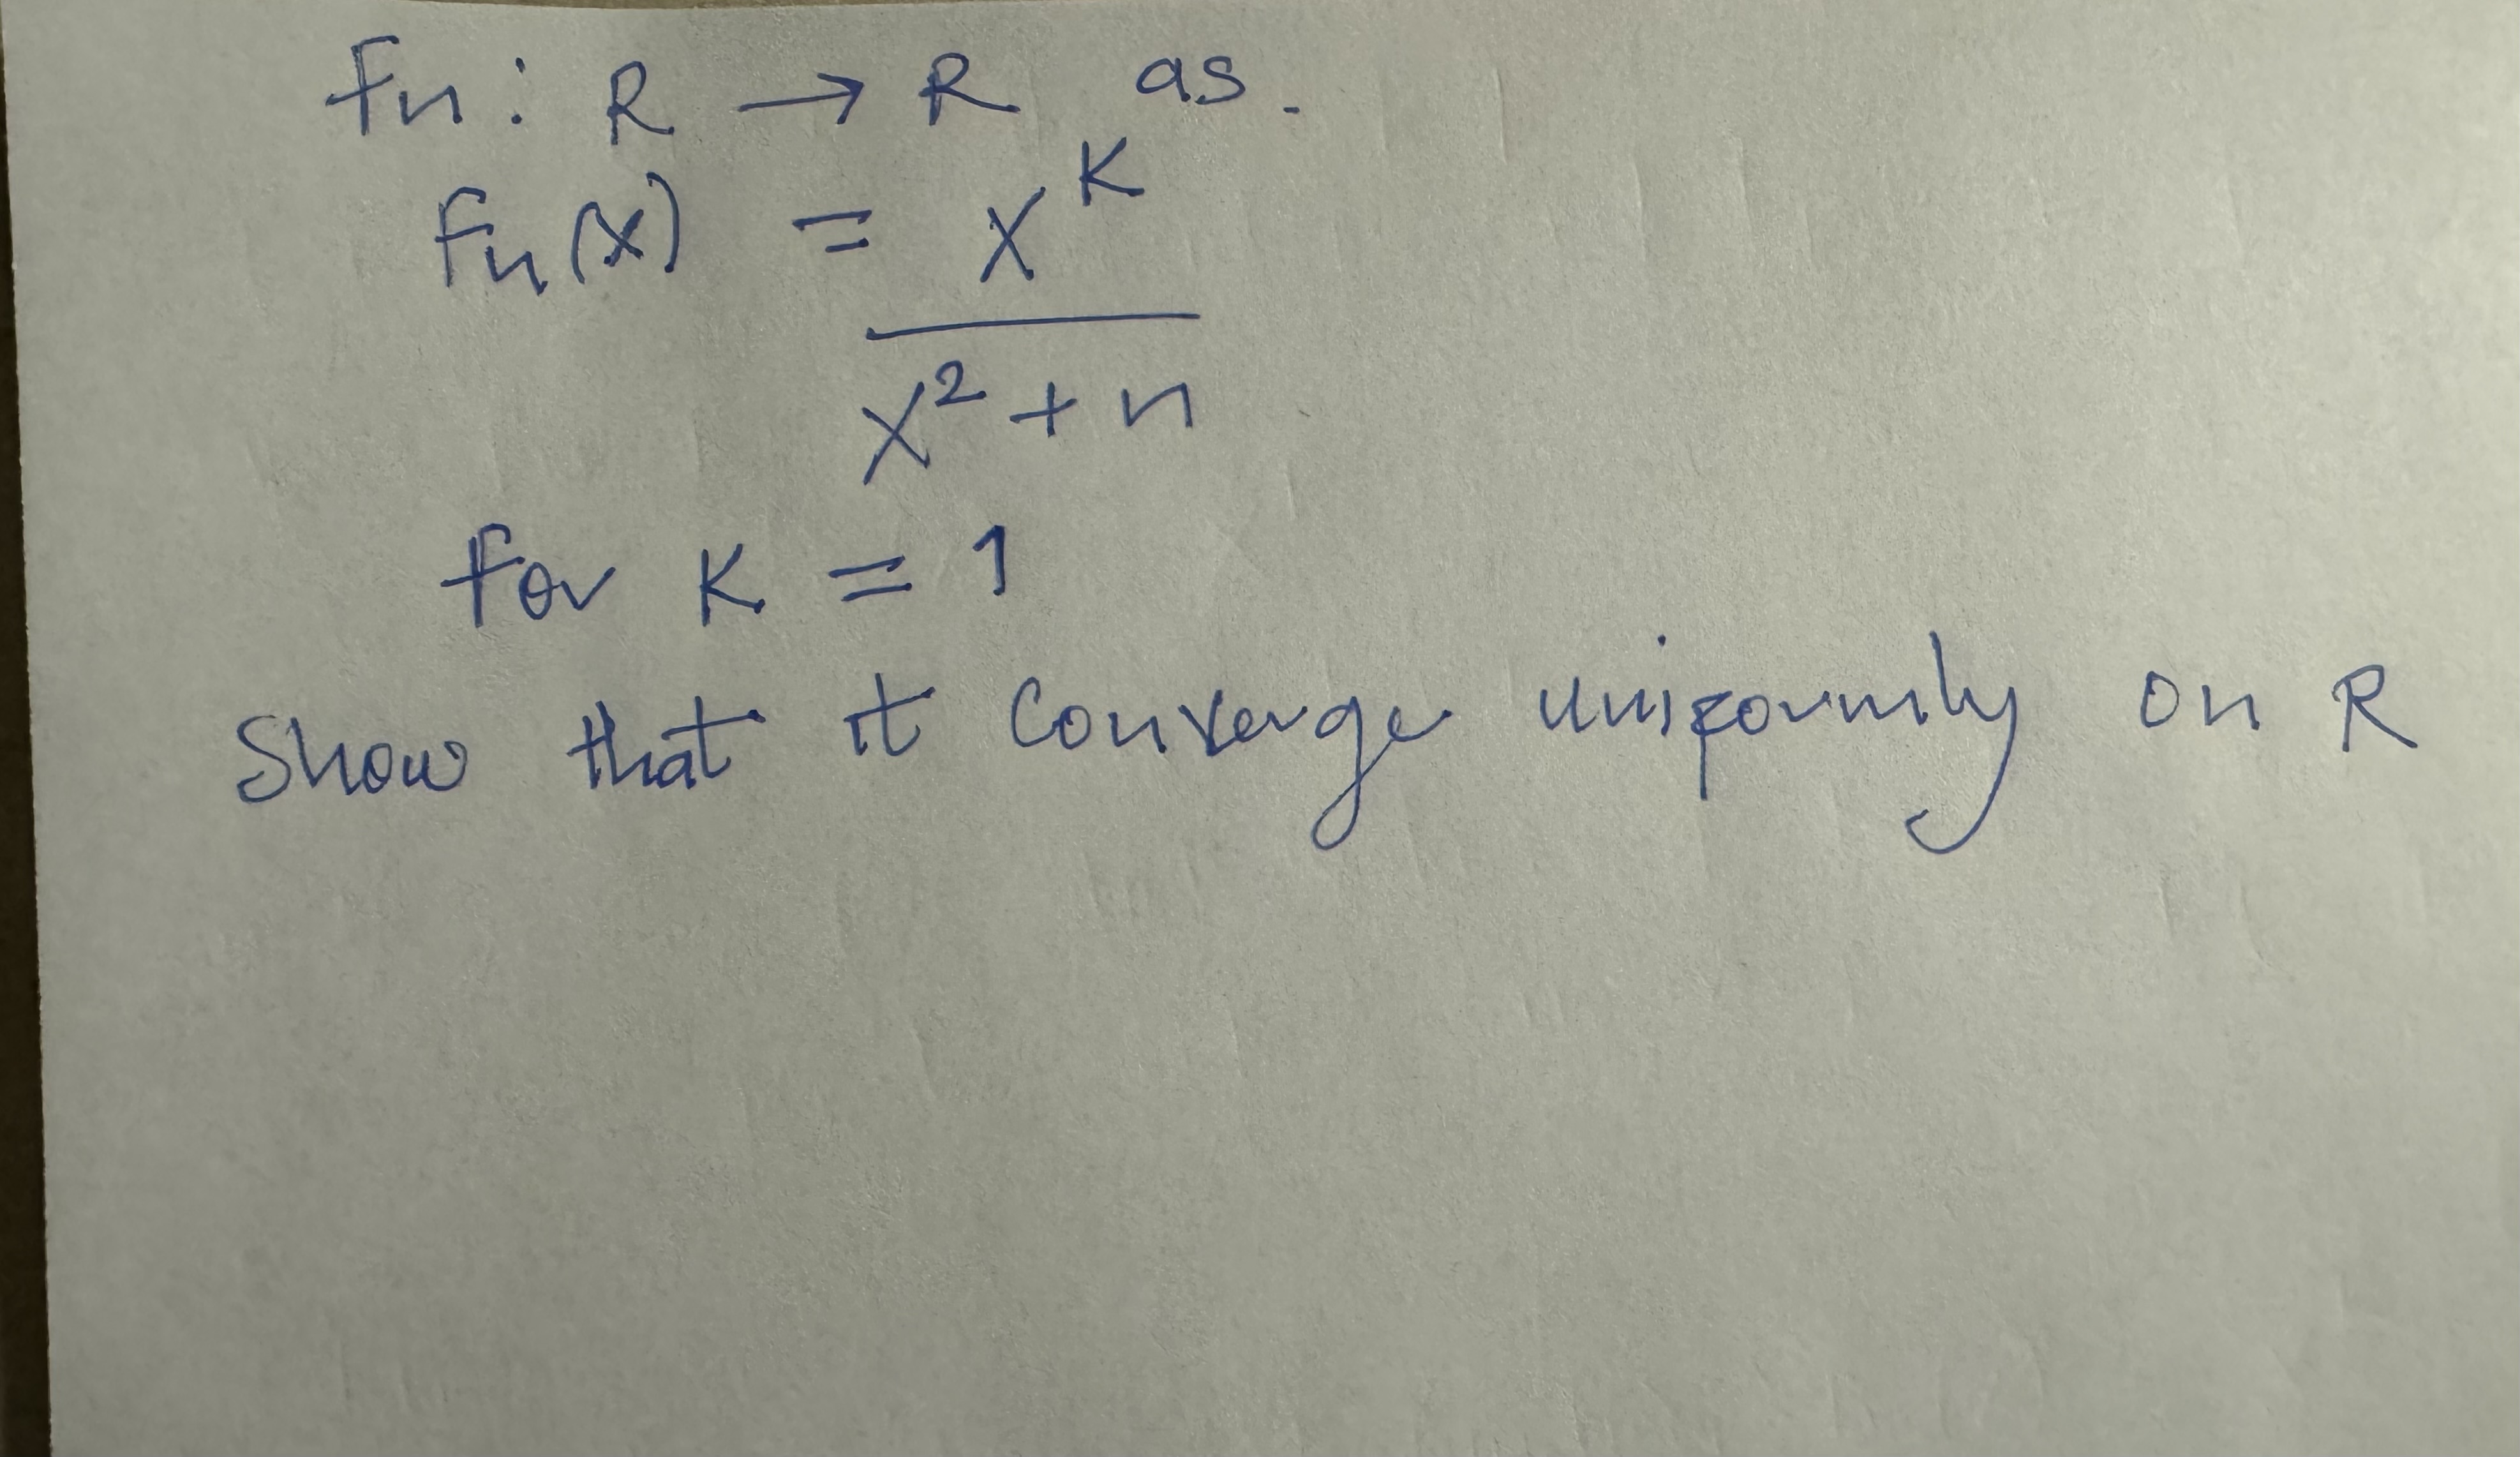 fn: R → R as.
fn(x) = x^K
/ x²+n
for K = 1
Show that it converge uniformly on R